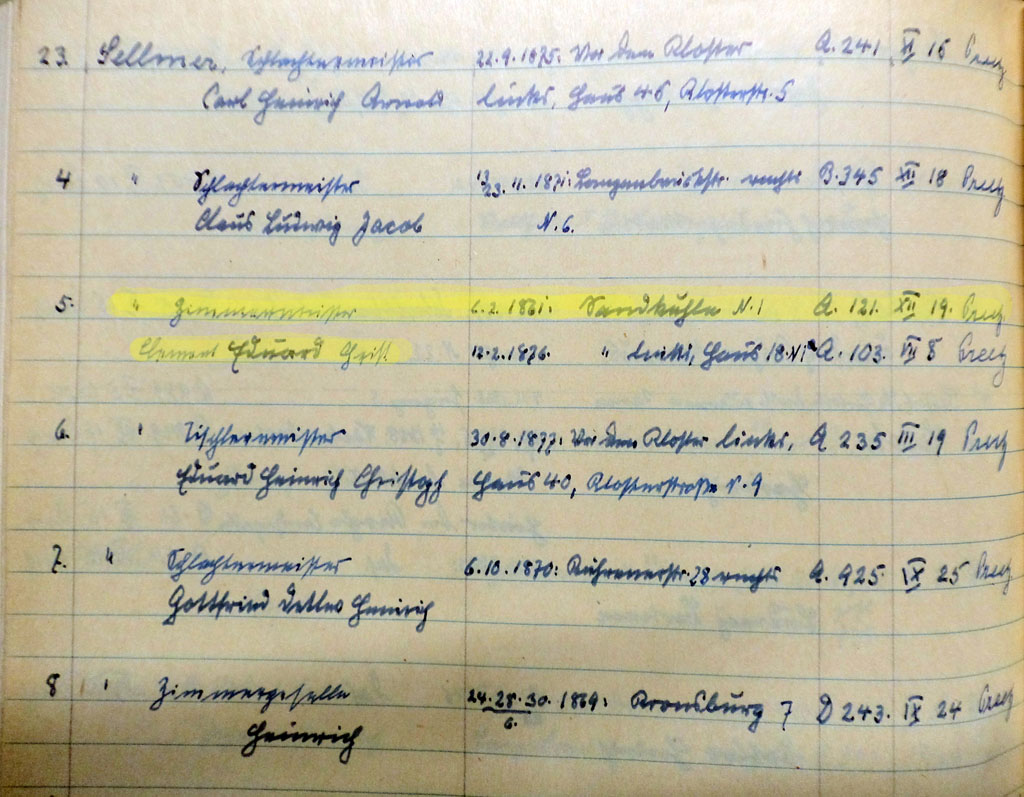 23. Sellmer, Schlachtermeister 22.9.1875: Vor dem Kloster A. 241 XI 15 Preetz
Carl Heinrich Arnold links, Haus 45, Klosterstr. 5
4 " Schlachtermeister 13./23. 11. 1871: Langenbrückstr. rechts B. 345 XII 18 Preetz
Claus Ludwig Jacob N. 6.
5. " Zimmermeister 6.2.1861: Sandkuhle N. 1 A. 121. XII 19. Preetz
Clement Eduard Christ. 12.2.1876. " links, Haus 18. N A. 103. VII 8 Preetz
6. " Tischlermeister 30.8.1877: Vor dem Kloster links, A 235 III 19 Preetz
Eduard Heinrich Christoph Haus 40, Klosterstraße N. 9
7. " Schlachtermeister 6.10.1870: Kührenerstr. 28 rechts A. 925 IX 25 Preetz
Gottfried Detlev Heinrich
8 " Zimmergeselle 24. 28. 30. 1869: Kronsburg 7 D 243. IX 24 Preetz
Heinrich 6.